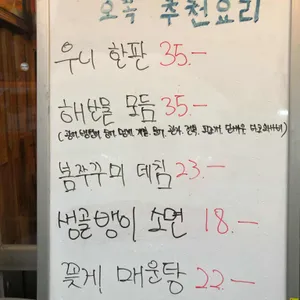 오늘 추천요리
우니 한판 35.-
해산물 모듬 35.-
봄쭈꾸미 데침 23.-
생골뱅이 소면 18.-
꽃게 매운탕 22.-